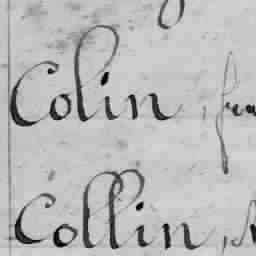 Colin,
Collin,